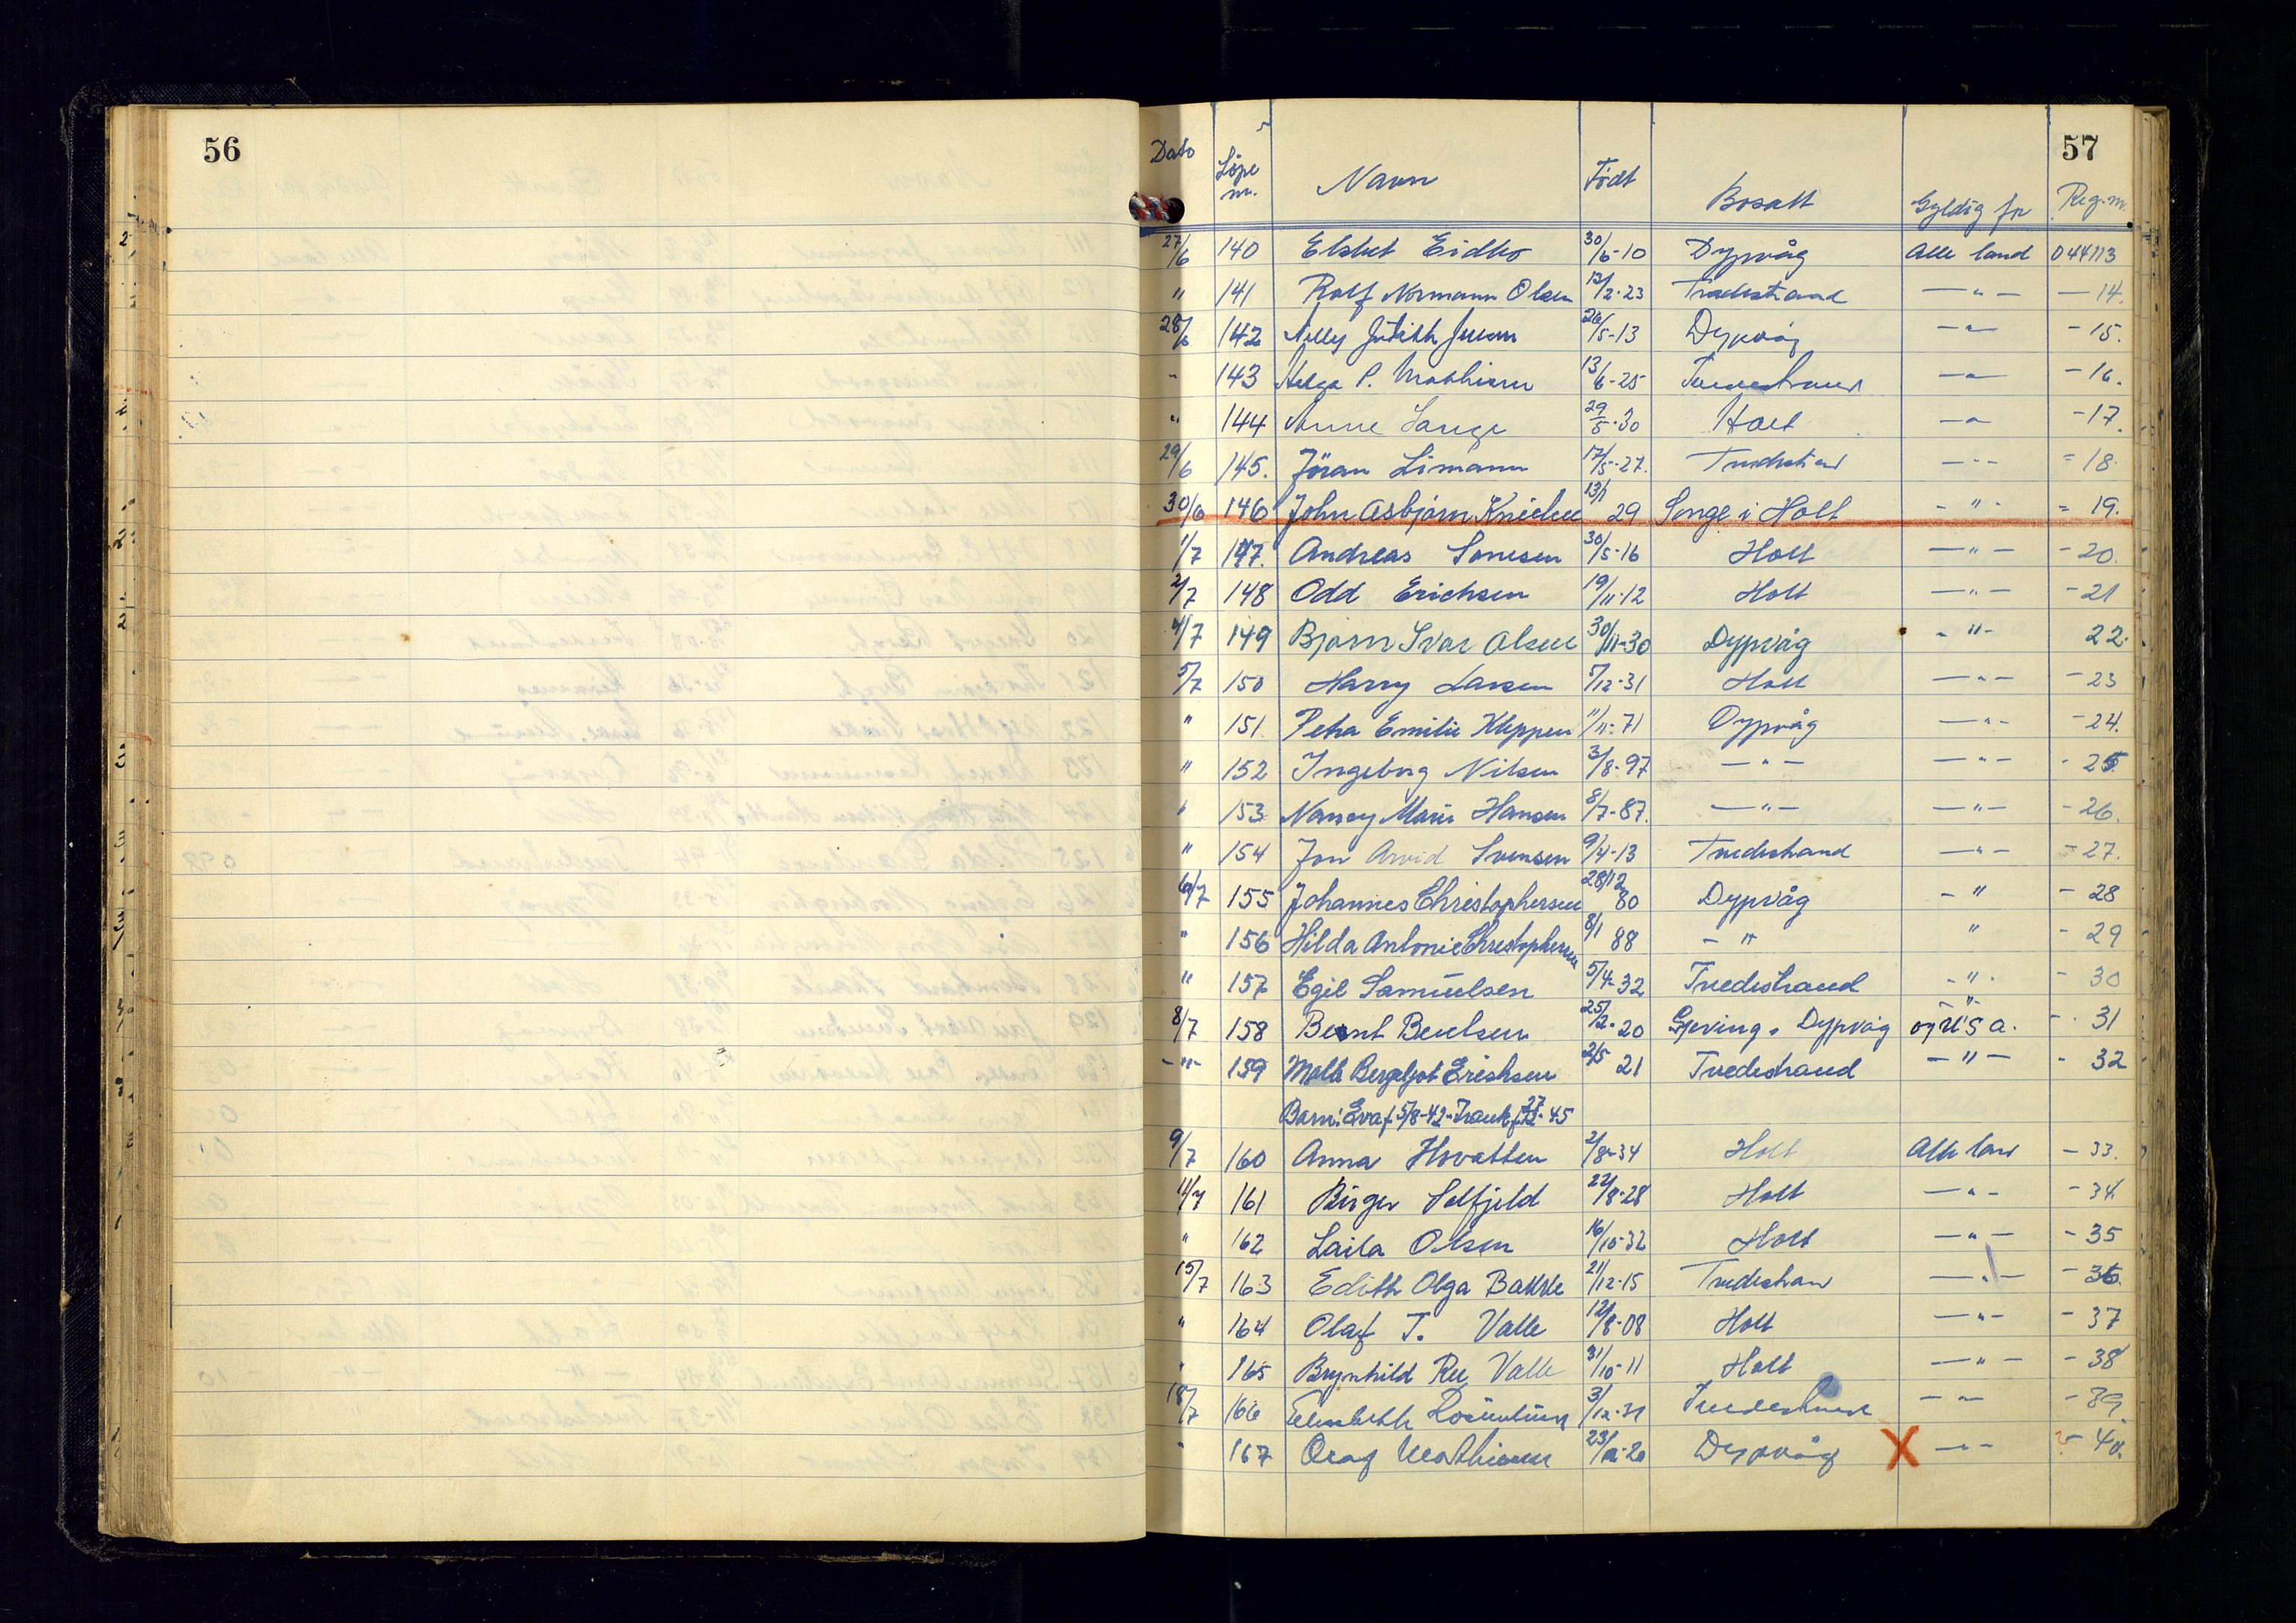 56
57
Dato Löpe nr. Navn Födt Bosatt Gyldig for Reg.nr.
27/6 140 Elsket Eidbo 30/6-10 Dypvåg Alle land 044113
" 141 Rolf Normann Olsen 13/2-23 Tvedestrand —"— —14.
28/6 142 Nelly Judith 26/5-13 Dypvåg —"— -15.
" 143 Helga P. Mathisen 13/6-25 Tvedestrand —"— -16.
" 144 Anne Lange 29/5-30 Holt —"— -17.
29/6 145. Jöran Limann 17/5-27. Tvedestrand —"— -18.
30/6 146 John Asbjørn 13/1 29 Songe i Holt -"- = 19.
1/7 147. Andreas 30/5-16 Holt —"— -20.
2/7 148 Odd Erichsen 19/11-12 Holt —"— -21
4/7 149 Bjørn Ivar Olsen 30/11-30 Dypvåg -"- 22.
5/7 150 Harry Larsen 5/12-31 Holt —"— -23
" 151. Petra Emilie Kleppen 11/11-71 Dypvåg —"— -24.
" 152 Ingeborg Nilsen 3/8-97 —"— —"— -25.
" 153 Nancy Marie Hansen 8/7-87. —"— —"— -26.
" 154 Jon Arvid Svensen 9/4-13 Tvedestrand —"— -27.
6/7 155 Johannes Christophersen 28/12 80 Dypvåg -" - 28
" 156 Hilda Antonie Christophersen 8/1 88 -" " - 29
" 157 Egil Samuelsen 5/4-32 Tvedestrand -"- - 30
8/7 158 Bernt Bentsen 25/2-20 Gjeving, Dypvåg -"- og USA. - 31
-"- 159 Molla Bergljot Erichsen 2/5 21 Tvedestrand -"- - 32
Barn: Eva f. 5/8-42- Frank f. 27/12-45
9/7 160 Anna Hovatten 2/8-34 Holt Alle land - 33.
11/7 161 Birger Solfjeld 22/8-28 Holt —"— -34.
" 162 Laila Olsen 16/10-32 Holt —"— -35
15/7 163 Edith Olga Bakke 21/12-15 Tvedestrand —"— -36.
" 164 Olaf T. Valle 12/8-08 Holt —"— -37
" 165 Brynhild Ree Valle 31/10-11 Holt —"— -38
18/7 166 Elisabeth 3/12-31 Tvedestrand —"— -39.
" 167 Olaf Mathisen 23/12-20 Dypvåg X —"— -40.